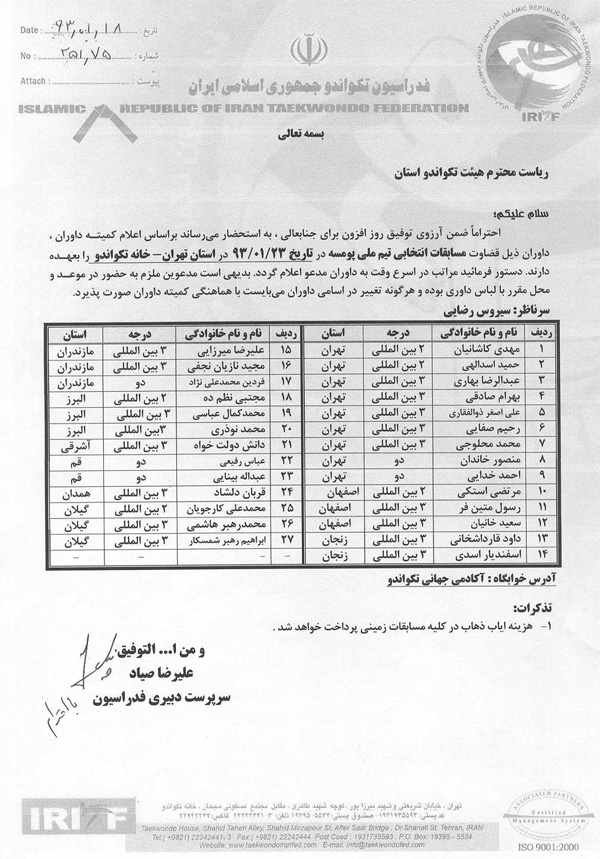 Date : ۹۳/۱/۱۸ تاریخ :
No : ۲۵۱۷۵ شماره :
Attach : پیوست :
ISLAMIC REPUBLIC OF IRAN TAEKWONDO FEDERATION
IRITF
فدراسیون تکواندو جمهوری اسلامی ایران
ISLAMIC REPUBLIC OF IRAN TAEKWONDO FEDERATION
بسمه تعالی
ریاست محترم هیئت تکواندو استان
سلام علیکم؛
احتراماً ضمن آرزوی توفیق روز افزون برای جنابعالی ، به استحضار می‌رساند براساس اعلام کمیته داوران ،
داوران ذیل قضاوت مسابقات انتخابی تیم ملی پومسه در تاریخ ۹۳/۰۱/۲۳ در استان تهران- خانه تکواندو را بعهده
دارند. دستور فرمائید مراتب در اسرع وقت به داوران مدعو اعلام گردد. بدیهی است مدعوین ملزم به حضور در موعد و
محل مقرر با لباس داوری بوده و هرگونه تغییر در اسامی داوران می‌بایست با هماهنگی کمیته داوران صورت پذیرد.
سرناظر: سیروس رضایی
ردیف نام و نام خانوادگی درجه استان ردیف نام و نام خانوادگی درجه استان
۱ مهدی کاشانیان ۲ بین المللی تهران ۱۵ علیرضا میرزایی ۳ بین المللی مازندران
۲ حمید اسدالهی ۲ بین المللی تهران ۱۶ مجید نازیان نجفی ۳ بین المللی مازندران
۳ عبدالرضا بهاری ۳ بین المللی تهران ۱۷ فردین محمدعلی نژاد دو مازندران
۴ بهرام صادقی ۳ بین المللی تهران ۱۸ مجتبی نظم ده ۲ بین المللی البرز
۵ علی اصغر ذوالفقاری ۳ بین المللی تهران ۱۹ محمدکمال عباسی ۳ بین المللی البرز
۶ رحیم صفایی ۳ بین المللی تهران ۲۰ محمد نوذری ۳بین المللی البرز
۷ محمد محلوجی ۳ بین المللی تهران ۲۱ دانش دولت خواه ۳ بین المللی آشرقی
۸ منصور خاندان دو تهران ۲۲ عباس رفیعی دو قم
۹ احمد خدایی دو تهران ۲۳ عبداله بینایی دو قم
۱۰ مرتضی استکی ۲ بین المللی اصفهان ۲۴ قربان دلشاد ۳ بین المللی همدان
۱۱ رسول متین فر ۳ بین المللی اصفهان ۲۵ محمدعلی کارجویان ۲ بین المللی گیلان
۱۲ سعید خانیان ۳ بین المللی اصفهان ۲۶ محمدرهبر هاشمی ۳ بین المللی گیلان
۱۳ داود قارداشخانی ۳ بین المللی زنجان ۲۷ ابراهیم رهبر شمسکار ۳ بین المللی گیلان
۱۴ اسفندیار اسدی ۳ بین المللی زنجان – – –
آدرس خوابگاه : آکادمی جهانی تکواندو
تذکرات:
۱- هزینه ایاب ذهاب در کلیه مسابقات زمینی پرداخت خواهد شد .
و من ا... التوفیق
علیرضا صیاد
سرپرست دبیری فدراسیون
با احترام
IRITF
تهران ، خیابان شریعتی و شهید میرزا پور، کوچه شهید طاهری ، مقابل مجتمع مسکونی سبحان ، خانه تکواندو
کد پستی: ۱۹۳۱۷۳۵۵۹۳ -صندوق پستی: ۵۵۳۴-۱۹۳۹۵ تلفن: ۳-۲۲۲۴۲۴۴۱ فاکس: ۲۲۲۴۲۴۴۴
Taekwondo House, Shahid Taheri Alley, Shahid Mirzapour St, After Sadr Bridge , Dr Shariati St. Tehran, IRAN
Tel:(+9821) 22242441-3 Fax:(+9821) 22242444 Post Coad : 1931735593 , P.O. Box: 19395 - 5534
Website: www.taekwondoiranfed.com E-mail: info@taekwondofed.com
ASSOCIATED PARTNERS
Certified
Management System
ISO 9001:2000